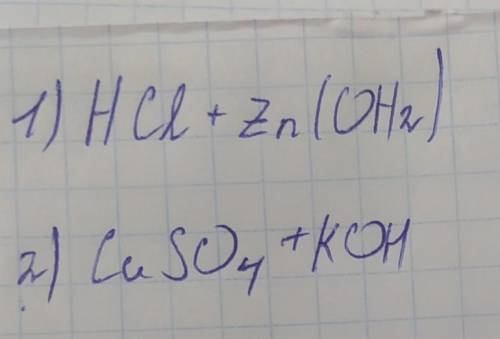 1) HCl + Zn(OH₂)
2) CuSO₄ + KOH